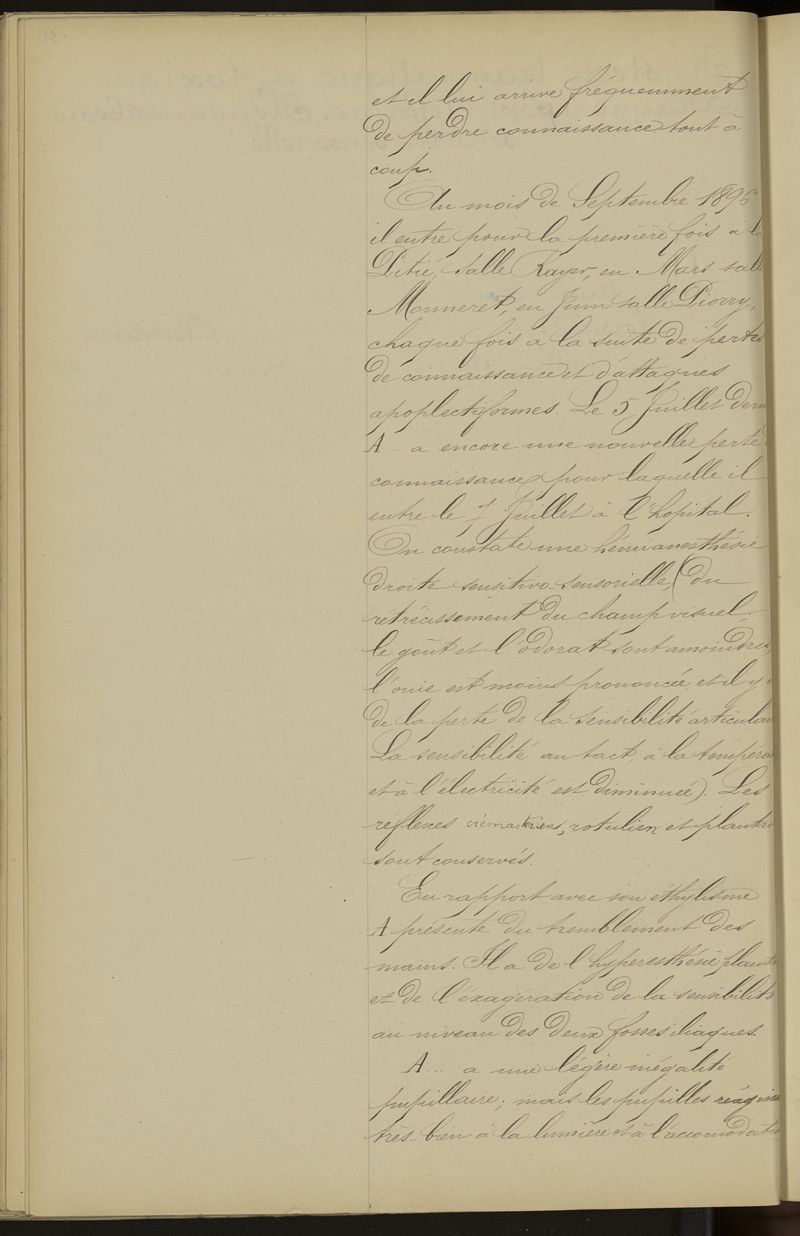 et il lui arrive fréquemment
de perdre connaissance tout à
coup.
Au mois de Septembre 1896
il entre pour la première fois à la
Pitié, salle Rayer, en Mars sall
Monneret, en Juin salle Piorry,
chaque fois à la suite de pertes
de connaissance et d'attaques
apoplectiformes. Le 5 Juillet dern
A... a encore une nouvelle perte
connaissance pour laquelle il
entre le 7 Juillet à l'hopital.
On constate une hémianesthésie
droite sensitivo-sensorielle, (du
rétrécissement du champ visuel;
le goût et l'odorat sont amoindris,
l'ouie est moins prononcée et il y
de la perte de la sensibilité articulai
La sensibilité au tact à la tempéra
et à l'électricité est diminuée). Les
reflexes crémastériens, rotulien et planta
sont conservés.
En rapport avec son éthylisme
A présente du tremblement des
mains. Il a de l'hyperesthésie planta
et de l'éxagération de la sensibilité
au niveau des deux fosses iliaques.
A... a une légère inégalité
pupillaire; mais les pupilles réagiss
très-bien à la lumière et à l'accomodatio